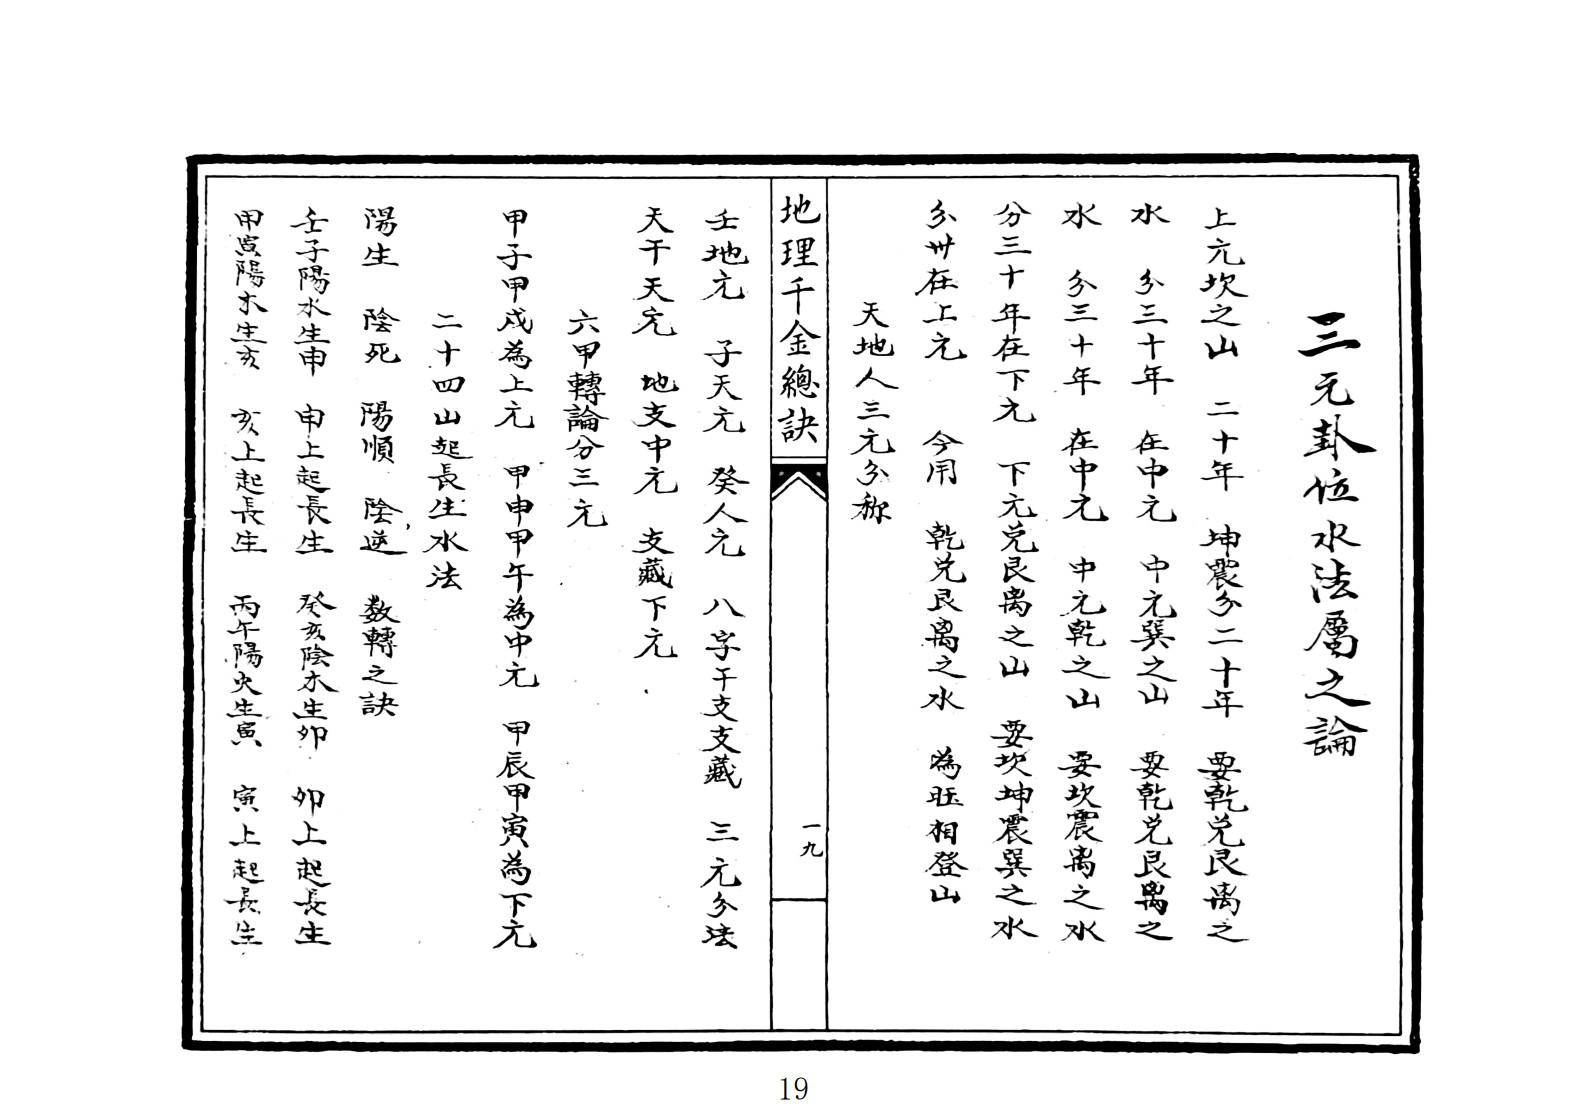 三元卦位水法屬之論
上元坎之山 二十年 坤震分二十年 要乾兌艮离之
水 分三十年 在中元 中元巽之山 要乾兌艮离之
水 分三十年 在中元 中元乾之山 要坎震离之水
分三十年在下元 下元兌艮离之山 要坎坤震巽之水
分卅在上元 今用 乾兌艮离之水 為旺相登山
天地人三元分称
地理千金總訣
一九
壬地元 子天元 癸人元 八字干支支藏 三元分法
天干天元 地支中元 支藏下元
六甲轉論分三元
甲子甲戌為上元 甲申甲午為中元 甲辰甲寅為下元
二十四山起長生水法
陽生 陰死 陽順 陰逆 数轉之訣
壬子陽水生申 申上起長生 癸亥陰木生卯 卯上起長生
甲寅陽木生亥 亥上起長生 丙午陽火生寅 寅上起長生
19